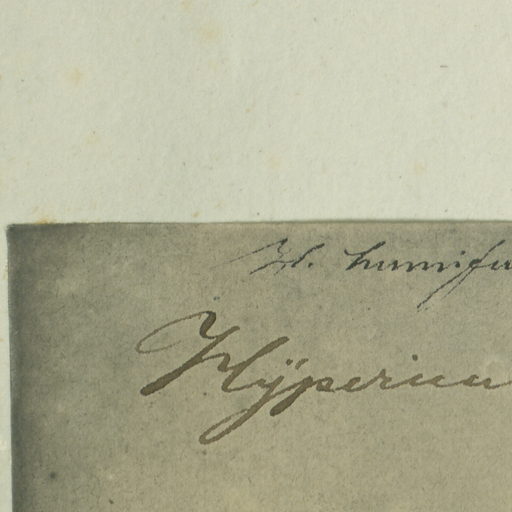 H. humifu
Hÿpericu